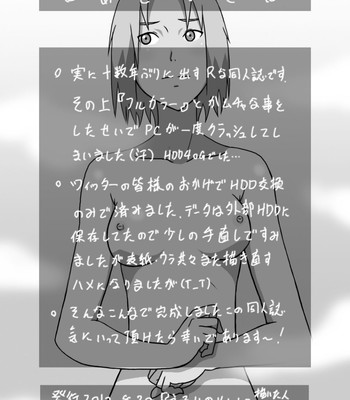 ○ 実に十数年ぶりに出すRな同人誌です。
その上『フルカラー』とかムチャな事を
したせいでPCが一度クラッシュしてし
まいました(汗) HDD40Gでした…
○ ツイッターの皆様のおかげでHDD交換
のみで済みました。データは外部HDDに
保存してたので少しの手直しですみ
ましたが表紙・ウラ共々また描き直す
ハメになりましたが(T_T)
○ そんなこんなで完成しましたこの同人誌
気にいって頂けたら幸いであります〜!
描いた人